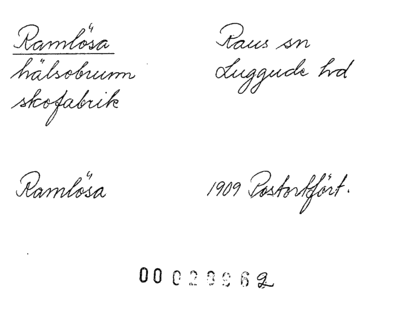 Ramlösa
hälsobrunn
skofabrik
Raus sn
Luggude hd
Ramlösa
1909 Postortfört.
00029962